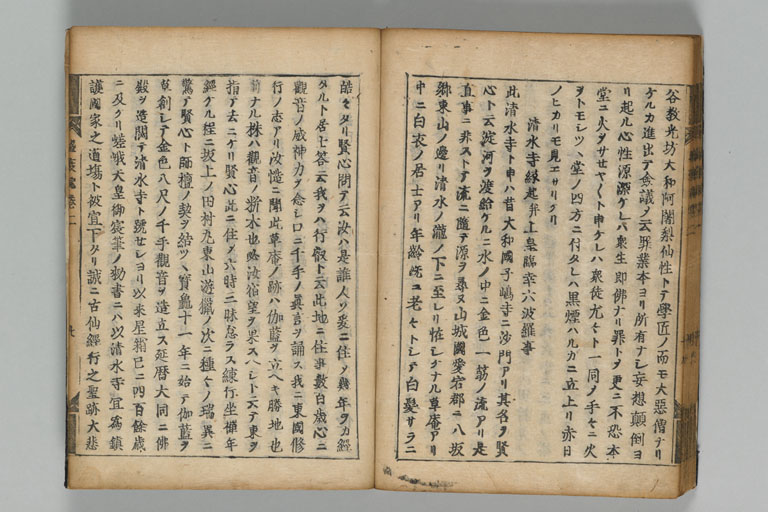 谷教光坊大和阿闍梨仙性トテ學匠ノ而モ大惡僧ナリ
ケルカ進出テ僉議ノ云罪業本ヨリ所有ナシ妄想顛倒ヨ
リ起ル心性源深ケレハ衆生即佛ナリ罪トヲ更ニ不恐本
堂ニ火ヲサセヤ〳〵ト申ケレハ衆徒尤セト一同ノ手々ニ火
ヲトモシツヽ堂ノ四方ニ付タレハ黒煙ハルカニ立上リ赤日
ノヒカリモ見エサリケリ
清水寺縁起并上皇臨幸六波羅事
此清水寺ト申ハ昔大和國子嶋寺ニ沙門アリ其名ヲ賢
心ト云淀河ヲ渡給ケルニ水ノ中ニ金色一筋ノ流アリ是
直事ニ非ストテ流ニ隨テ源ヲ尋ヌ山城國愛宕郡ニ八坂
郷東山ノ邊リ清水ノ瀧ノ下ニ至レリ恠シケナル草庵アリ
中ニ白衣ノ居士アリ年齢既ニ老セトシテ白髮サラニ
皓々タリ賢心問テ云汝ハ是誰人ソ爰ニ住ソ幾年ヲカ經
タルト居士答云我ヲハ行叡ト云此地ニ住事數百歳心ニ
觀音ノ威神力ヲ念シロニ千手ノ眞言ヲ誦ス我ニ東國修
行ノ志アリ汝慥ニ聞此草庵ノ跡ハ伽藍ヲ立ヘキ勝地也
前ナル株ハ觀音ノ料木也汝宿望ヲ果スヘシト云テ東ヲ
指テ去ニケリ賢心此ニ住ソ六時三昧怠ラス練行坐禅年
經ケル程ニ坂上ノ田村丸東山遊獵ノ次ニ種々ノ瑞異ニ
驚テ賢心ト師檀ノ契ヲ結ツヽ寶龜十一年ニ始テ伽藍ヲ
草創シテ金色八尺ノ千手觀音ヲ造立ス延暦大同ニ佛
殿ヲ造闢テ清水寺ト號セシヨリ以来星霜已ニ四百餘歳
ニ及ケリ嵯峨天皇御宸筆ノ勅書ニハ以清水寺宜爲鎮
護國家之道塲ト被宣下タリ誠ニ古仙經行之聖跡大悲